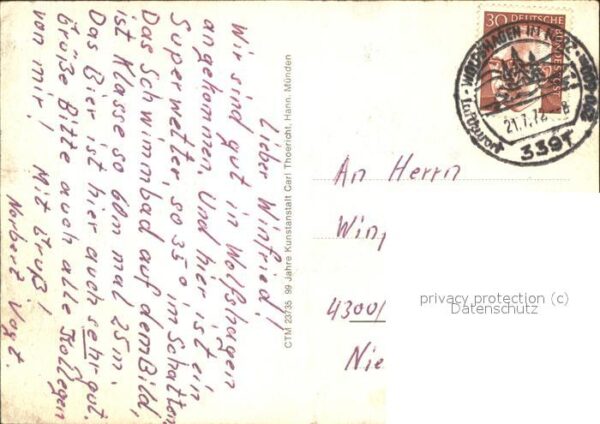 Lieber Winfried!
Wir sind gut in Wolfshagen
angekommen. Und hier ist ein
Superwetter, so 35° im Schatten.
Das Schwimmbad auf dem Bild,
ist Klasse so 60m mal 25m.
Das Bier ist hier auch sehr gut.
Grüße Bitte auch alle Kollegen
von mir! Mit Gruß!
Norbert Vogt.
CTM 23735 99 Jahre Kunstanstalt Carl Thoericht, Hann. Münden
30 DEUTSCHE BUNDESPOST
WOLFSHAGEN IM HARZ
Luftkurort
21.7.72
3391
An Herrn
Win
4300/
Nie
privacy protection (c)
Datenschutz